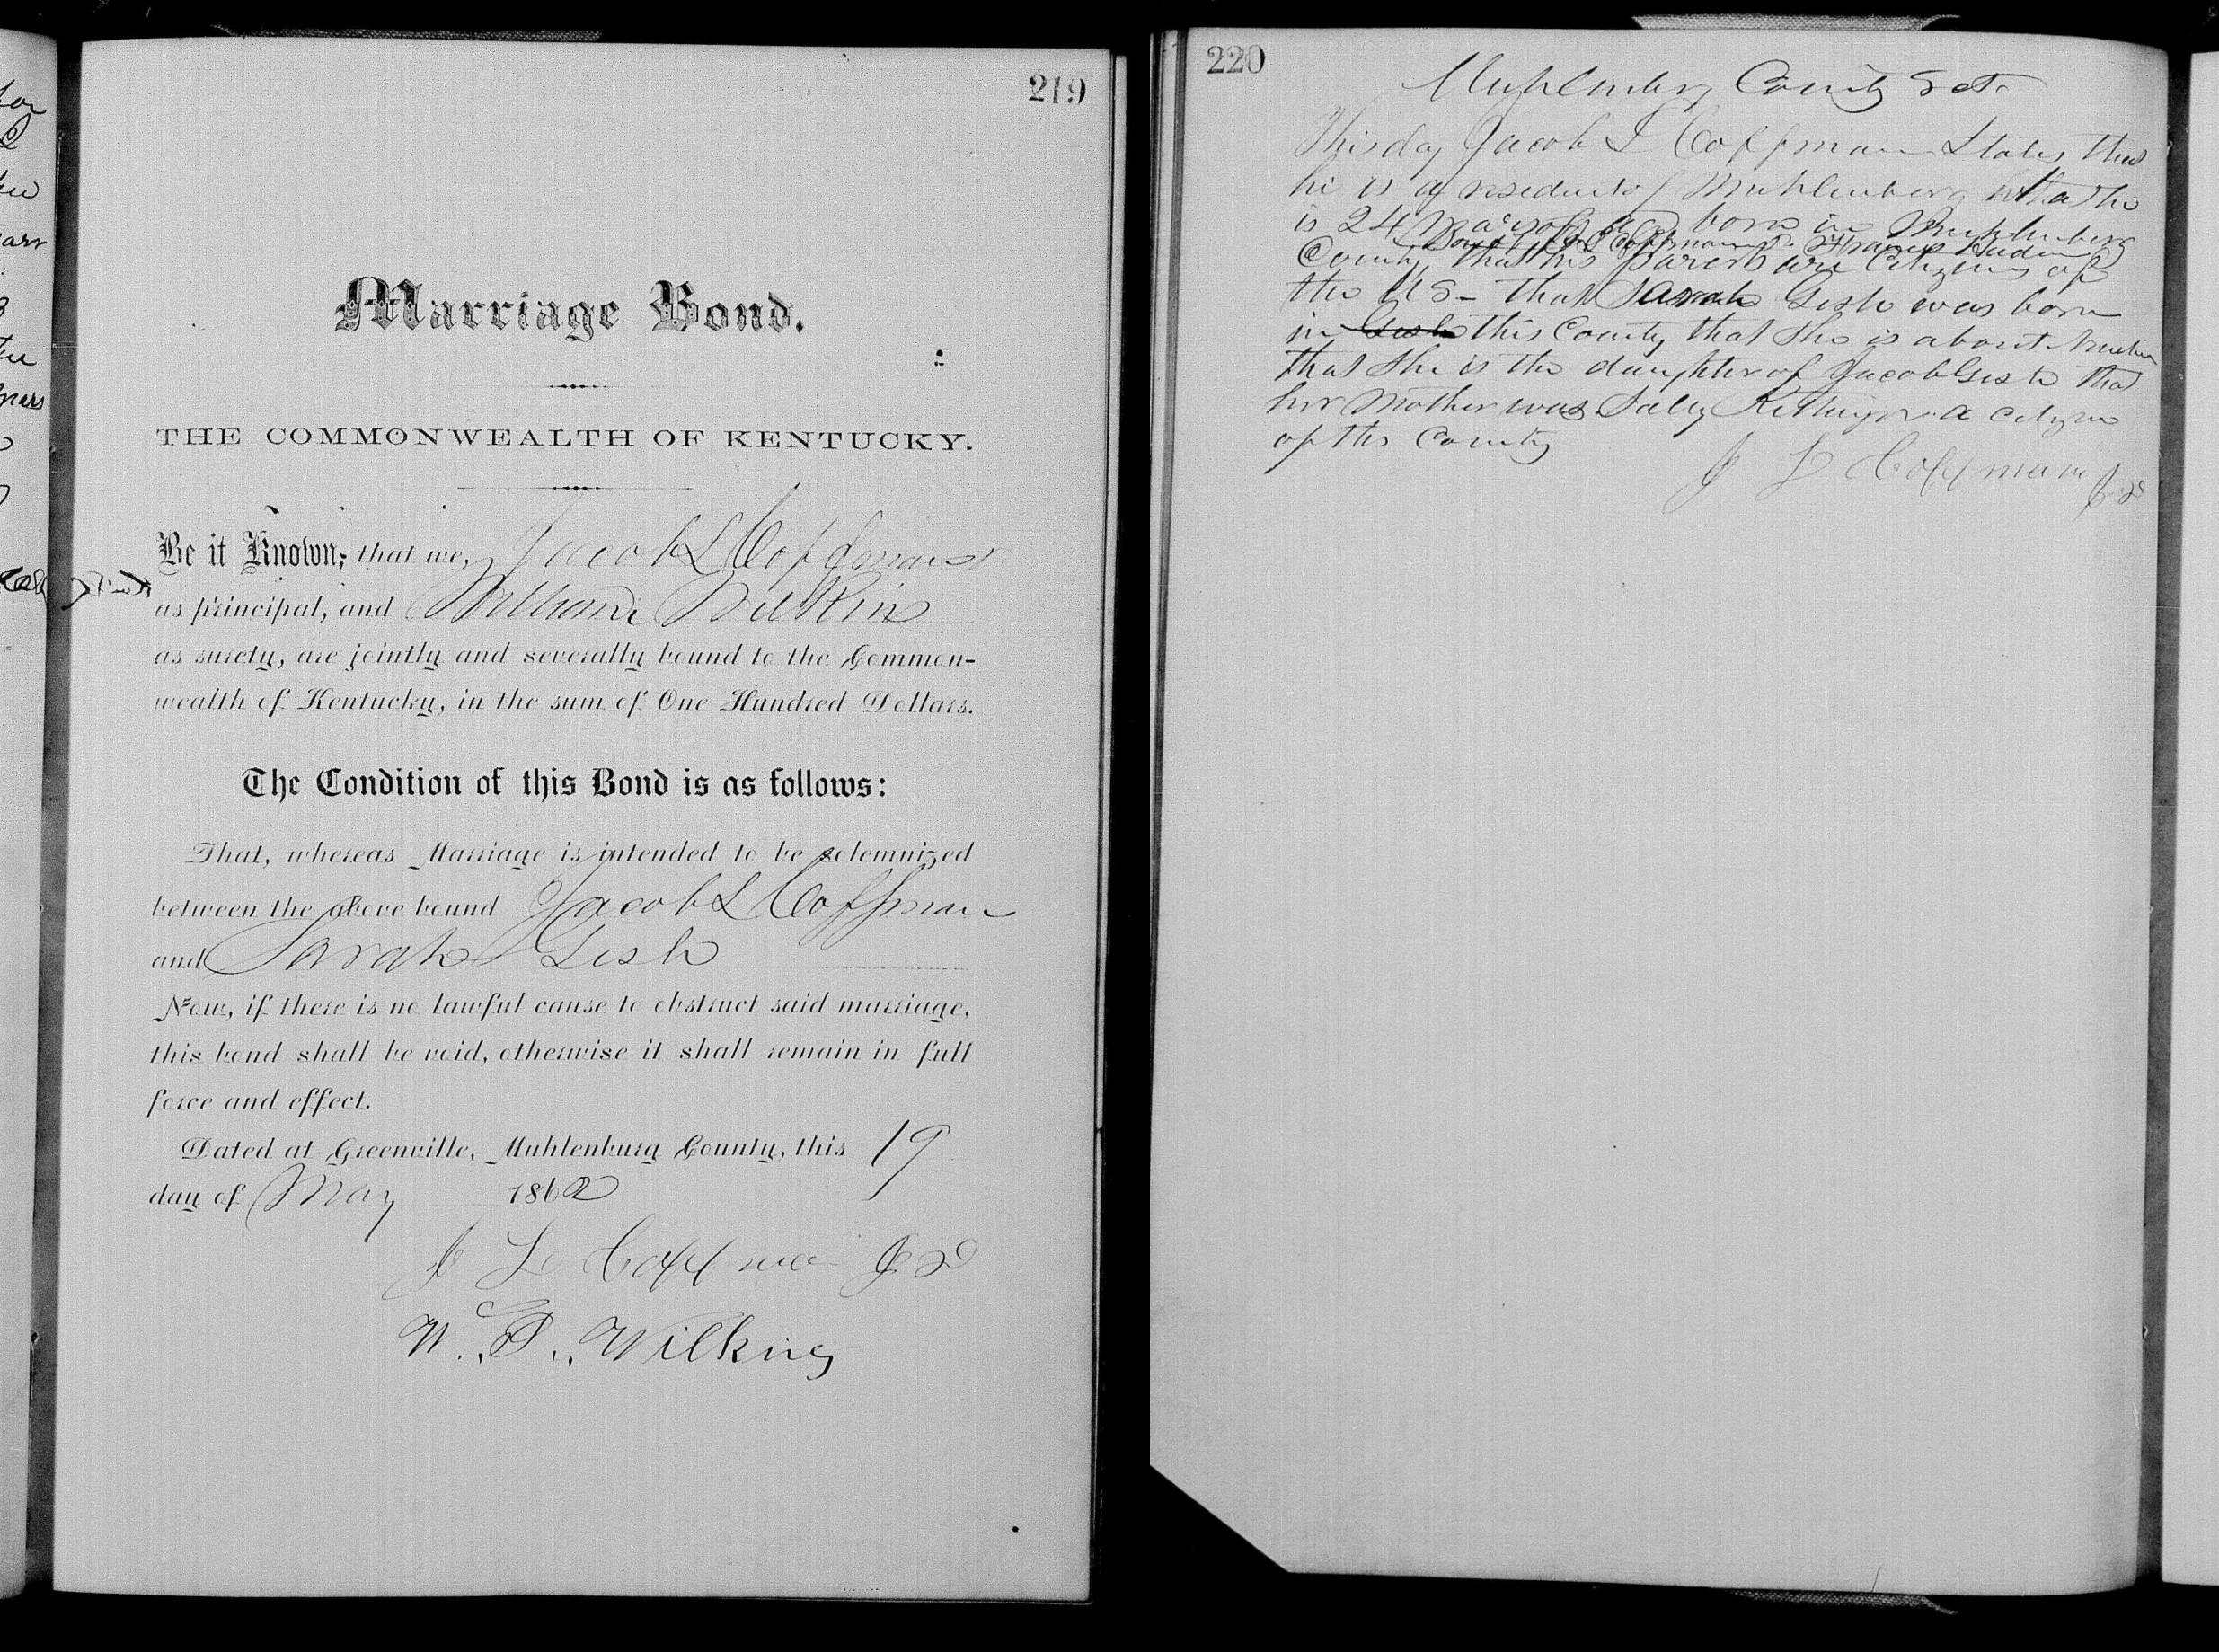 219
Marriage Bond.
THE COMMONWEALTH OF KENTUCKY.
Be it Known, that we, Jacob L Coffman
as principal, and William Wilkins
as surety, are jointly and severally bound to the Common-
wealth of Kentucky, in the sum of One Hundred Dollars.
The Condition of this Bond is as follows:
That, whereas Marriage is intended to be solemnized
between the above bound Jacob L Coffman
and Sarah Gish
Now, if there is no lawful cause to obstruct said marriage,
this bond shall be void, otherwise it shall remain in full
force and effect.
Dated at Greenville, Muhlenburg County, this 19
day of May 1862
J L Coffman Jr
W. D. Wilkins
220
Muhlenberg County Sct.
This day Jacob L Coffman States that
he is a resident of Muhlenberg that he
is 24 years of age born in Muhlenberg
Son of Coffman Frances
County that his parents are Citizens of
the US - that Sarah Gish was born
in Gish this County that she is about
that she is the daughter of Jacob Gish that
her mother was Sally a citizen
of this County
J L Coffman Jr